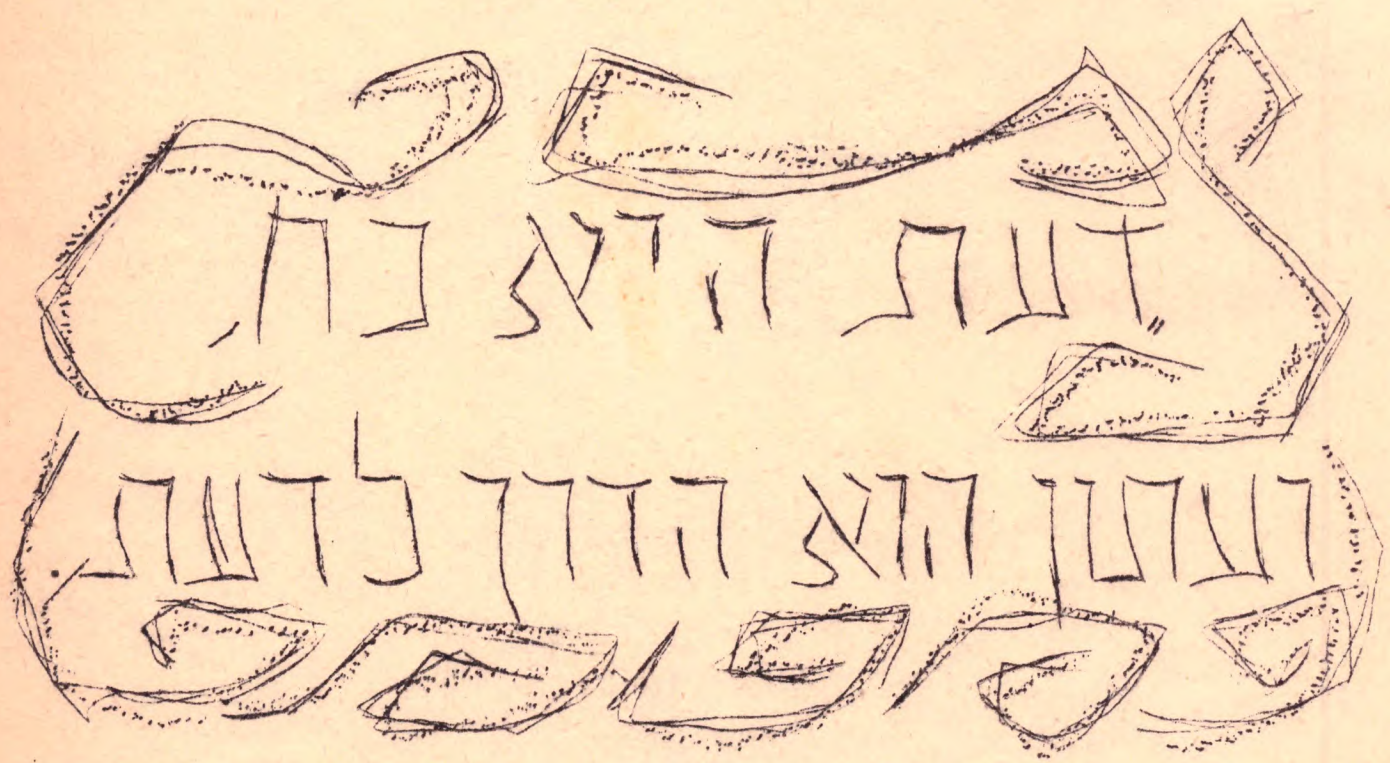 „דעת היא כח,
ועתון הוא הדרך לדעת.